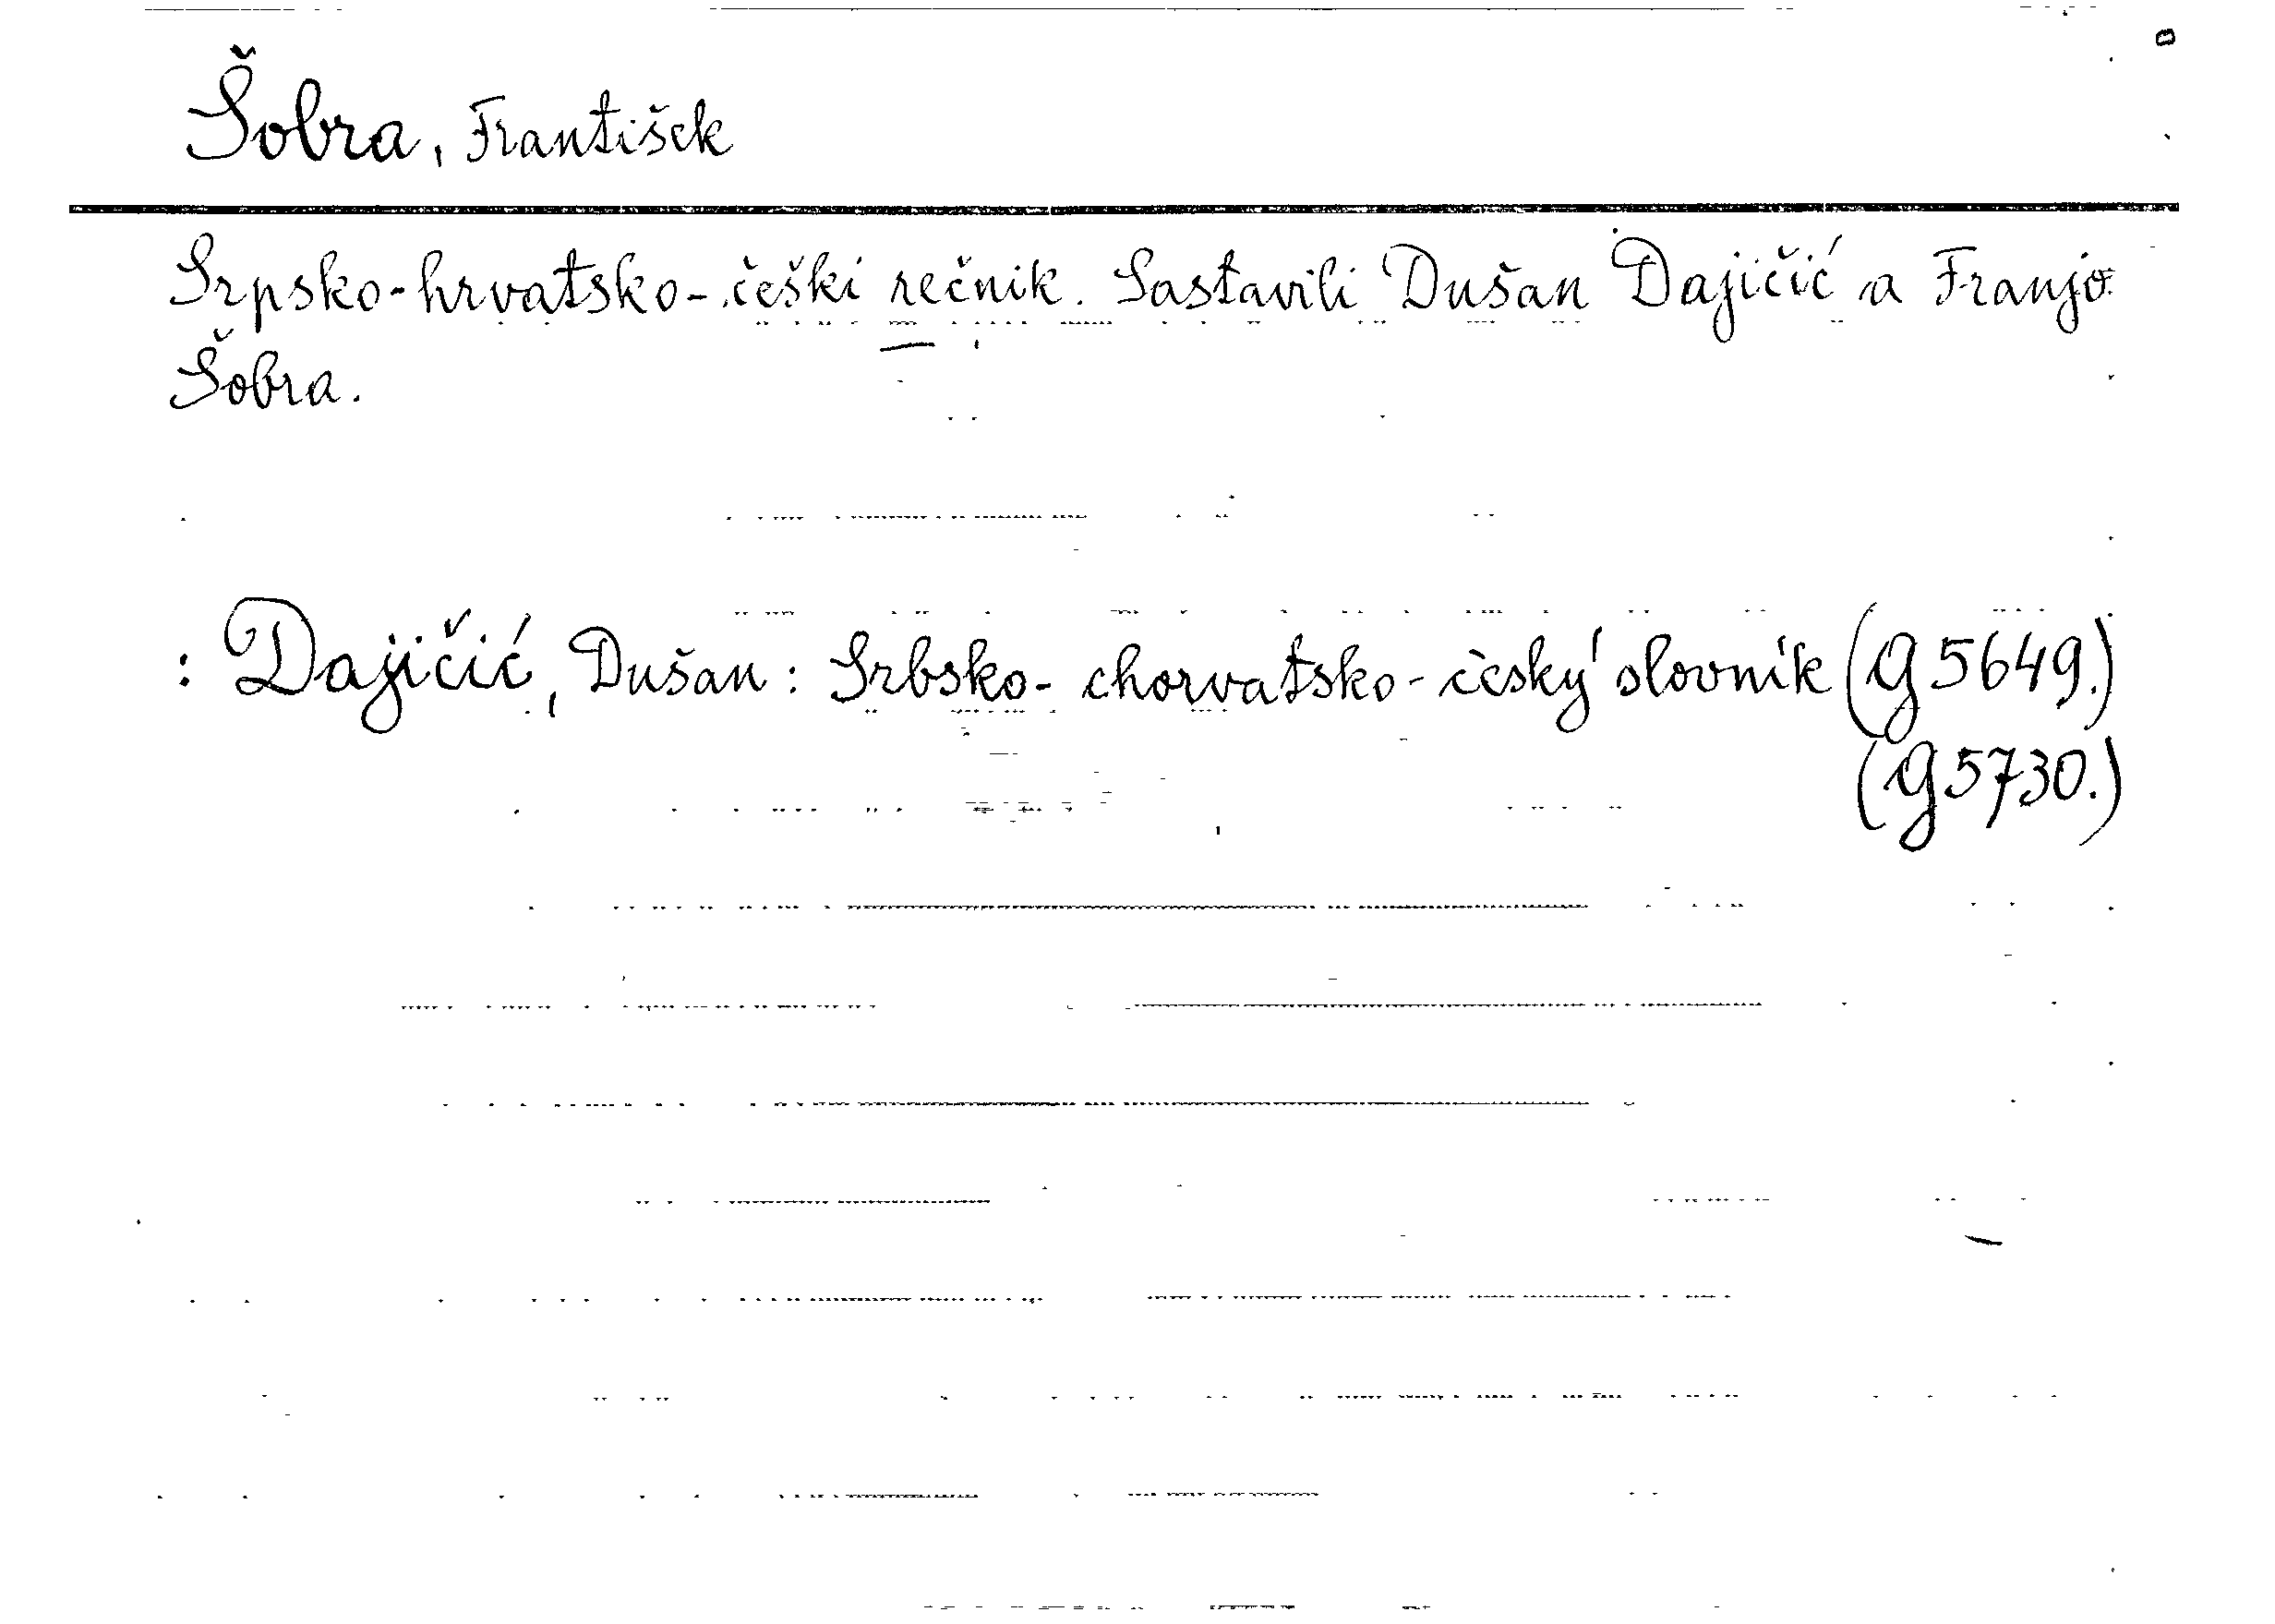 Šobra, František
Srpsko-hrvatsko-češki rečnik. Sastavili Dušan Dajičić a Franjo
Šobra.
: Dajičić, Dušan: Srbsko-chorvatsko-český slovník (G 5649.)
(G 5730.)